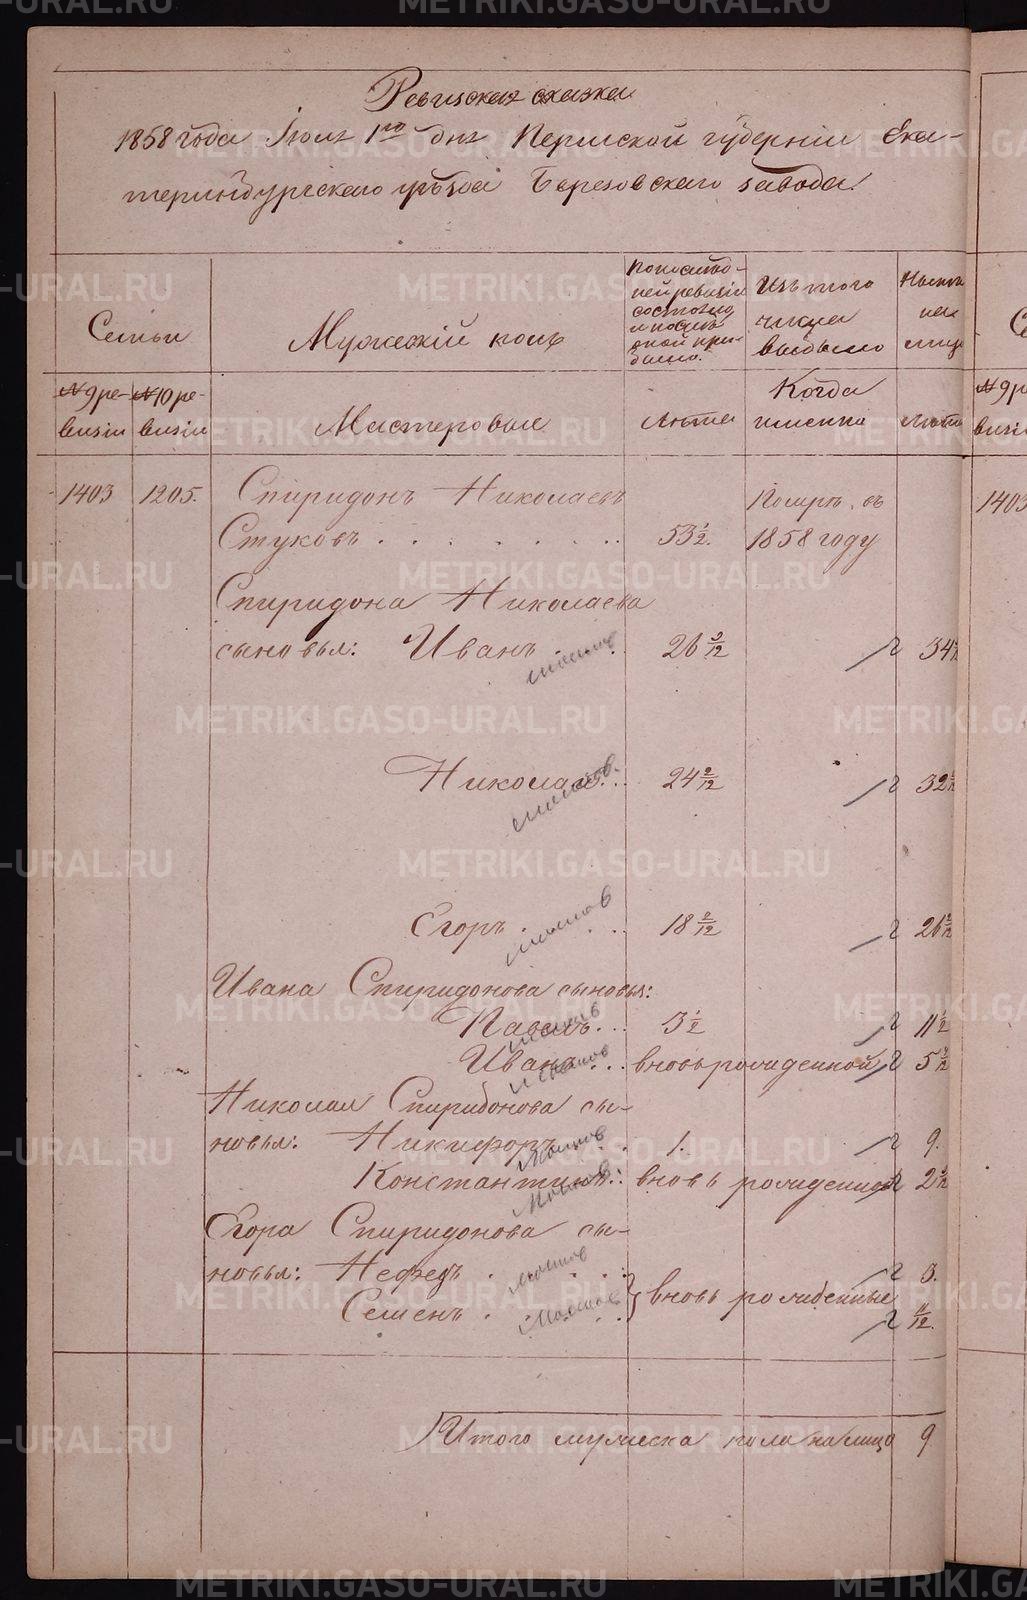 Ревизская сказка
1858 года Июля 1го дня Пермской губернии Ека-
теринбургскаго уезда Березовскаго завода.
Семьи
Мужеский полъ
По последо-
ней ревизии
состояло
и после
оной при-
было.
Изъ того
числа
выбыло
Ныне
на
лице
№ 9 ре-
визии
№ 10 ре-
визии
Мастеровые
Лета
Когда
именно
Лета
№ 9 р
визи
1403
1205.
Спиридонъ Николаевъ
Стуковъ
53½.
Помръ въ
1858 году
1403
Спиридона Николаева
сыновья: Иванъ
26 3/12
34
Николай
24 2/12
32
Егоръ
18 2/12
26 2/12
Ивана Спиридонова сыновья:
Павелъ
3½
11½
Иванъ
вновьрожденной
5
Николая Спиридонова сы-
новья: Никифоръ
1.
9.
Константинъ
вновь рожденной
2
Егора Спиридонова сы-
новья: Нефедъ
3.
Семенъ
вновь рожденные
11/12.
Итого мужеска пола на лицо 9
METRIKI.GASO-URAL.RU